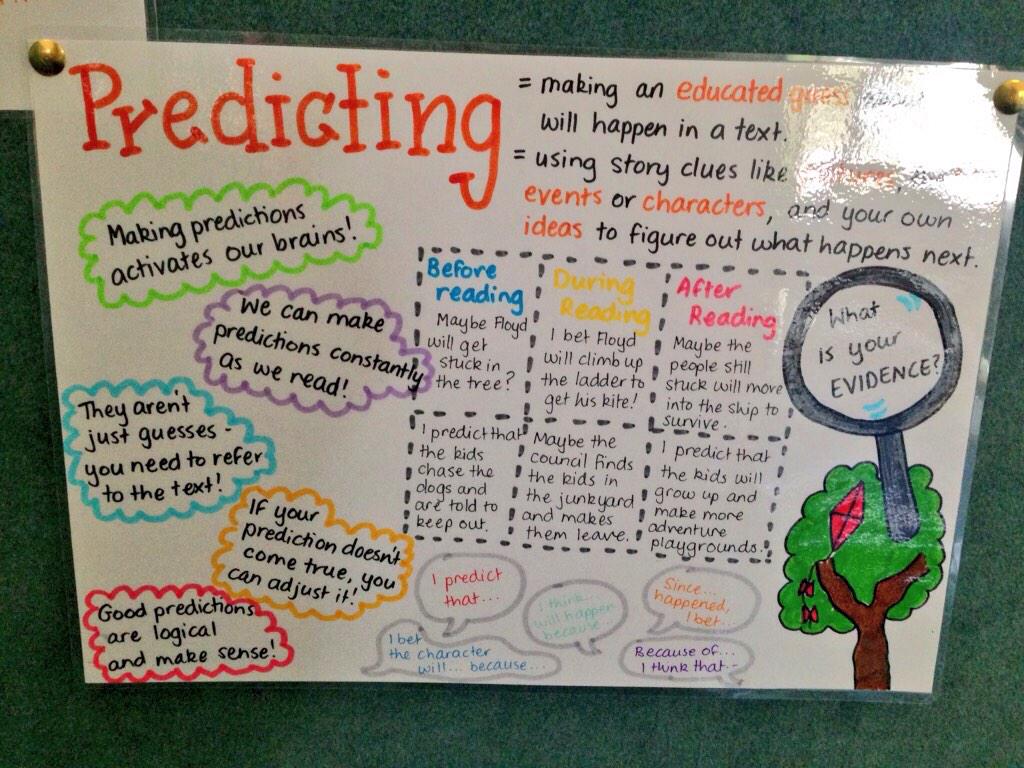 Predicting
= making an educated guess
will happen in a text.
= using story clues like
events or characters, and your own
ideas to figure out what happens next.
Making predictions
activates our brains!
We can make
predictions constantly
as we read!
They aren't
just guesses -
you need to refer
to the text!
If your
prediction doesn't
come true, you
can adjust it!
Good predictions
are logical
and make sense!
Before
reading
Maybe Floyd
will get
stuck in
the tree?
During
Reading
I bet Floyd
will climb up
the ladder to
get his kite!
After
Reading
Maybe the
people still
stuck will move
into the ship to
survive.
I predict that
the kids
chase the
dogs and
are told to
keep out.
Maybe the
council finds
the kids in
the junkyard
and makes
them leave.
I predict that
the kids will
grow up and
make more
adventure
playgrounds.
What
is your
EVIDENCE?
I predict
that...
I think...
will happen
because...
Since...
happened,
I bet...
I bet
the character
will... because...
Because of...
I think that...